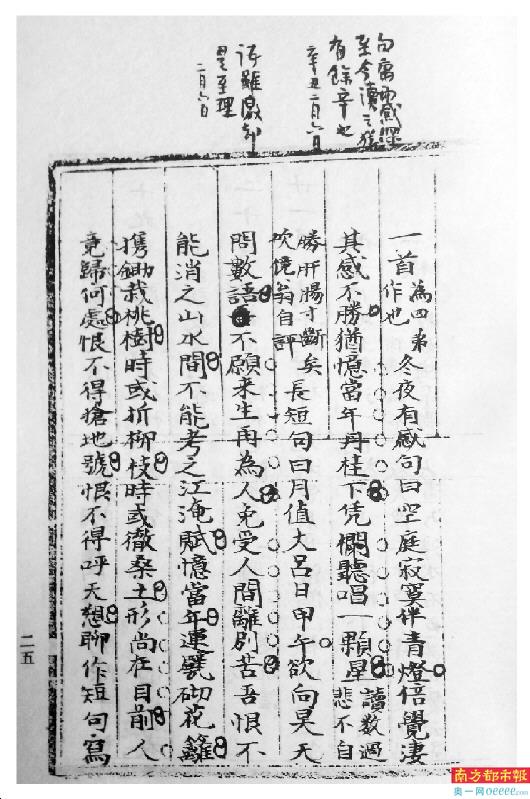 至今讀之猶
辛丑二月六日
語雖激却
是至理
二月六日
一首為四弟作也冬夜有感句曰空庭寂寞伴青燈倍覺淒
其感不勝猶憶當年丹桂下凭欄聽唱一顆星讀數過悲不自
勝肝腸寸斷矣翁自評長短句曰月值大呂日甲午欲向昊天
問數語不願來生再為人免受人間離別苦吾恨不
能消之山水間不能考之江淹賦憶當年運甓砌花籬
攜鋤栽桃樹時或折柳枝時或徹桑土形尚在目前人
竟歸何處恨不得搶地號恨不得呼天想聊作短句寫
二五
南方都市报
奥一网oeeee.com